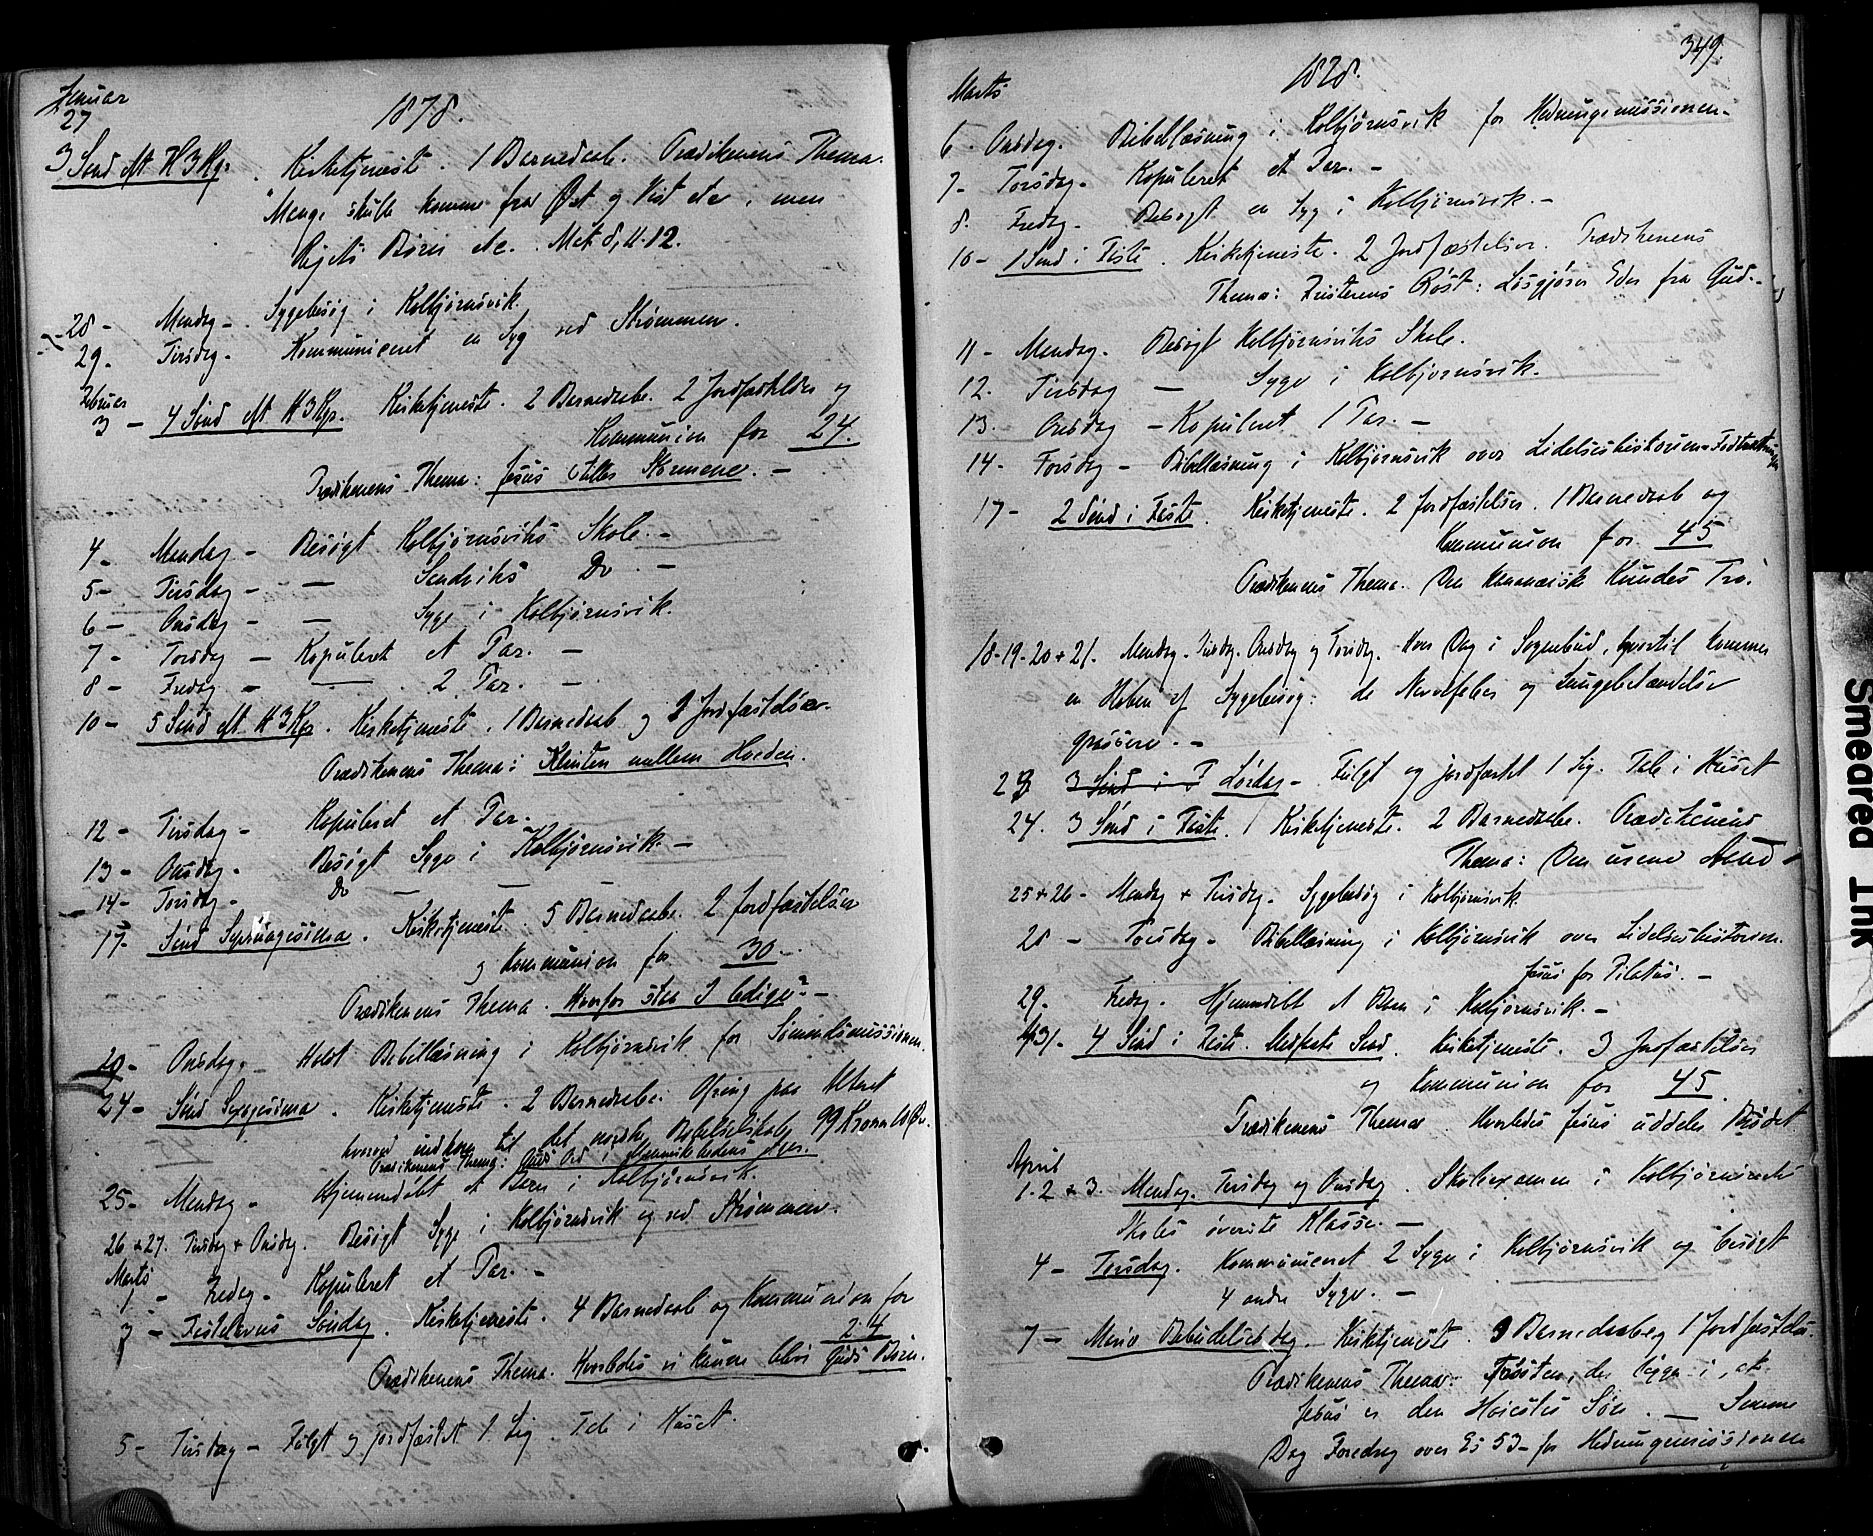 Januar
27
1878.
3 Sønd eft H3Kgr. Kirketjeneste. 1 Barnedaab. Prædikenens Thema.
"Mange skulle komme fra Øst og Vest etc, men
Rigets Børn etc. Mat. 8, 11.12.
28 - Mandag - Sygebesøg i Kolbjørnsvik.
29. Tirsdag - Kommuniceret en Syg ved Strømmen.
Februar
3 - 4 Sønd eft H3Kgr. Kirketjeneste. 2 Barnedaabe. 2 Jordfæstelser og
Kommunion for 24.
Prædikenens Thema: Jesus stiller Stormene. -
4 - Mandag - Besøgt Kolbjørnsviks Skole. -
5 - Tirsdag - — Sandviks Do -
6 - Onsdag - — Syge i Kolbjørnsvik.
7 - Torsdag - Kopuleret et Par. -
8 - Fredag - — 2 Par. -
10 - 5 Sønd eft H3Kgr. Kirketjeneste, 1 Barnedaab og 2 Jordfæstelser.
Prædikenens Thema: Klinten mellem Hveden.
12 - Tirsdag - Kopuleret et Par.
13 - Onsdag - Besøgt Syge i Kolbjørnsvik. -
14 - Torsdag - Do — —
17 - Sønd Septuagesima. Kirketjeneste. 5 Barnedaabe. 2 Jordfæstelser
og Kommunion for 30. -
Prædikenens Thema. Hvorfor staa I ledige? -
20 - Onsdag. - Holdt Bibellæsning i Kolbjørnsvik for Sømandsmissionen.
24 - Sønd Sexagesima. Kirketjeneste. 2 Barnedaabe. Ofring paa Alteret
hvorved indkom til det norske Bibelselskab 99 Kroner 10 Øre.
Prædikenens Thema: Guds Ord i Menneskehedens Ager.
25 - Mandag - Hjemmedøbt et Barn i Kolbjørnsvik.
26 & 27. Tirsdag & Onsdag. Besøgt Syge i Kolbjørnsvik og ved Strømmen.
Marts
1 - Fredag - Kopuleret et Par. -
3 - Fastelavns Søndag. Kirketjeneste. 4 Barnedaab og Kommunion for
24
Prædikenens Thema. Hvorledes vi kunne blive Guds Børn.
5 - Tirsdag - Fulgt og jordfæstet 1 Lig. Tale i Huset.
349.
1878.
Marts
6 - Onsdag. Bibellæsning i Kolbjørnsvik for Hedningemissionen. -
7 - Torsdag - Kopuleret et Par. -
8. Fredag - Besøgt en Syg i Kolbjørnsvik. -
10 - 1 Sønd i Faste. Kirketjeneste. 2 Jordfæstelser. Prædikenens
Thema: Fristerens Røst: Løsgjører Eder fra Gud. -
11 - Mandag. Besøgt Kolbjørnsviks Skole.
12. Tirsdag — Syge i Kolbjørnsvik. -
13. Onsdag - Kopuleret 1 Par. -
14 - Torsdag - Bibellæsning i Kolbjørnsvik over Lidelseshistorien
17 - 2 Sønd i Faste. Kirketjeneste. 2 Jordfæstelser. 1 Barnedaab og
Kommunion for 45
Prædikenens Thema. Den kananæisk Kvindes Tro.
18-19-20 & 21. Mandag. Tirsdag. Onsdag og Torsdag. Hver Dag i Sognebud, hvortil kommer
en Hoben af Sygebesøg: da Nervefeber og Lungebetændelse
grassere. -
23 3 Sønd i F Lørdag - Fulgt og jordfæstet 1 Lig. Tale i Huset
24. 3 Sønd i Faste. Kirketjeneste. 2 Barnedaabe. Prædikenens
Thema: Den urene Aand.
25 & 26 - Mandag & Tirsdag. Sygebesøg i Kolbjørnsvik.
28 - Torsdag - Bibellæsning i Kolbjørnsvik over Lidelseshistorien.
Jesus for Pilatus. -
29 - Fredag. Hjemmedøbt et Barn i Kolbjørnsvik. -
31. 4 Sønd i Faste. Midfaste Sønd. Kirketjeneste. 3 Jordfæstelser
og Kommunion for 45.
Prædikenens Thema. Hvorledes Jesus uddeler Brødet
April
1. 2 & 3. Mandag. Tirsdag og Onsdag. Skoleexamen i Kolbjørnsviks
Skoles øverste Klasse. -
4 - Torsdag. Kommuniceret 2 Syge i Kolbjørnsvik og besøgt
4 andre Syge. -
7 - Mariæ Bebudelsesdag. Kirketjeneste. 3 Barnedaabe og 1 Jordfæstelse.
Prædikenens Thema: Trøsten, der ligger i, at
Jesus er den Høiestes Søn. — Samme
Dag Foredrag over Es 53 - for Hedningemissionen
Smeared Ink